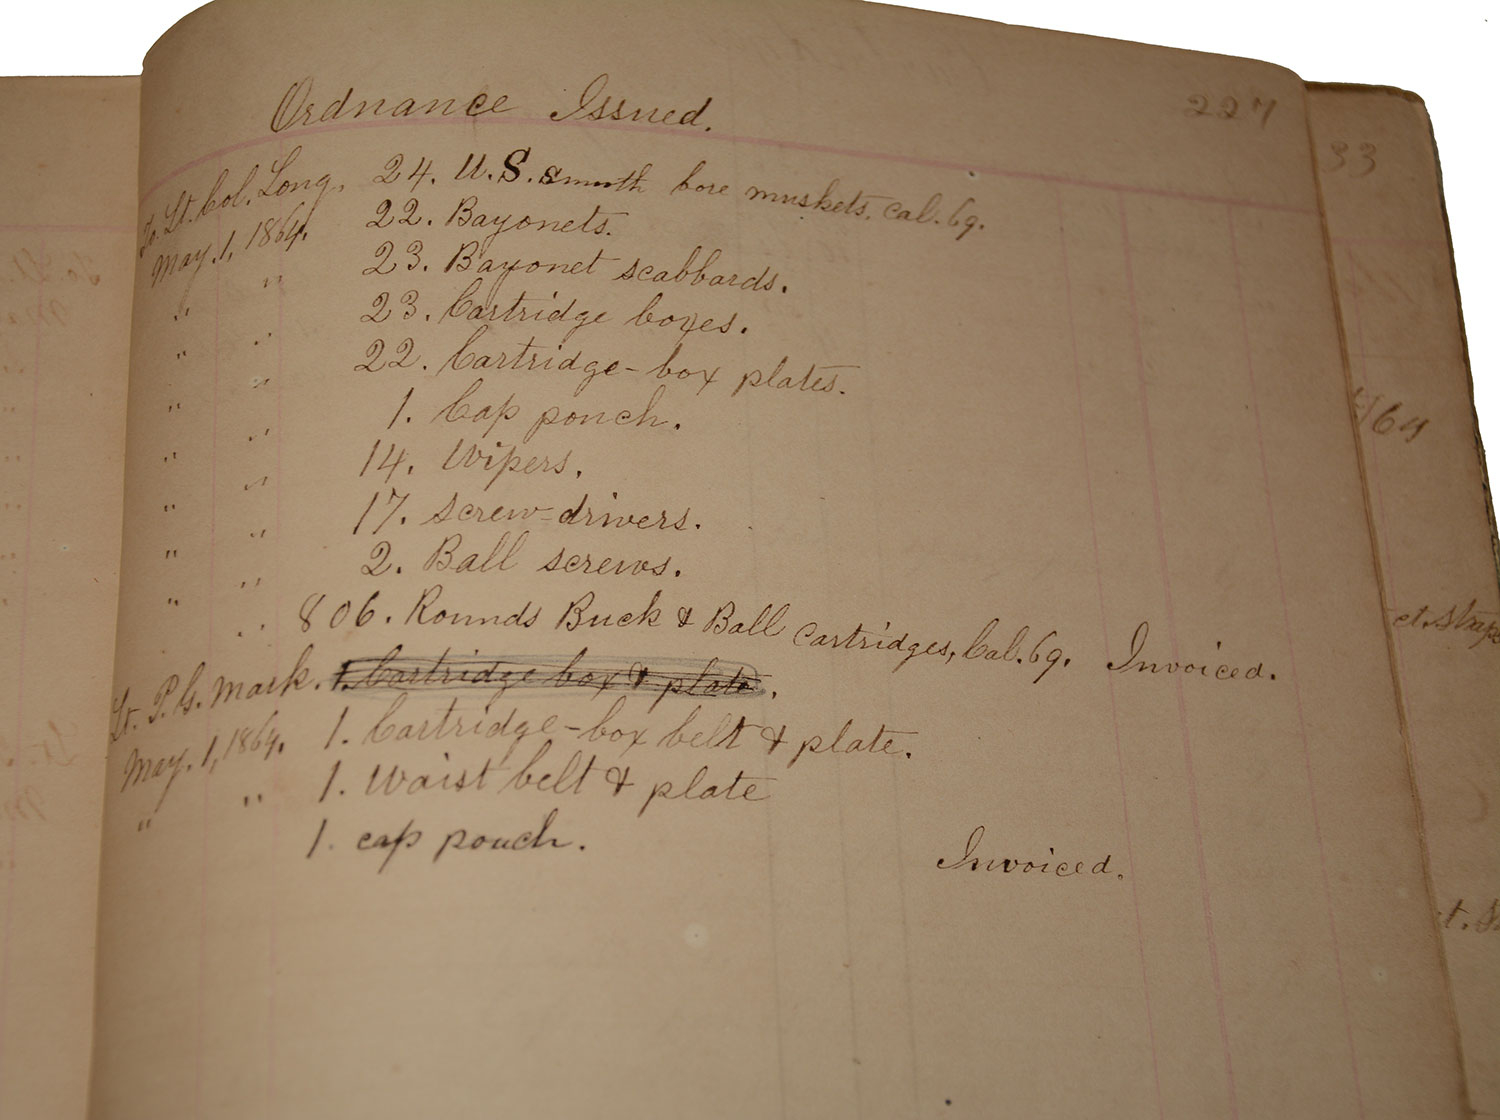 Ordnance Issued.
227
33
To. Lt. Col. Long, 24. U.S. smooth bore muskets, cal. 69.
May. 1, 1864. 22. Bayonets.
" " 23. Bayonet scabbards.
" " 23. Cartridge boxes.
" " 22. Cartridge-box plates.
" " 1. Cap pouch.
" " 14. Wipers.
" " 17. Screw-drivers.
" " 2. Ball screws.
" " 806. Rounds Buck & Ball Cartridges, Cal. 69. Invoiced.
Lt. P. G. Mark. 1. Cartridge box & plate.
May. 1, 1864. 1. Cartridge-box belt & plate.
" " 1. Waist belt & plate
1. cap pouch.
Invoiced.